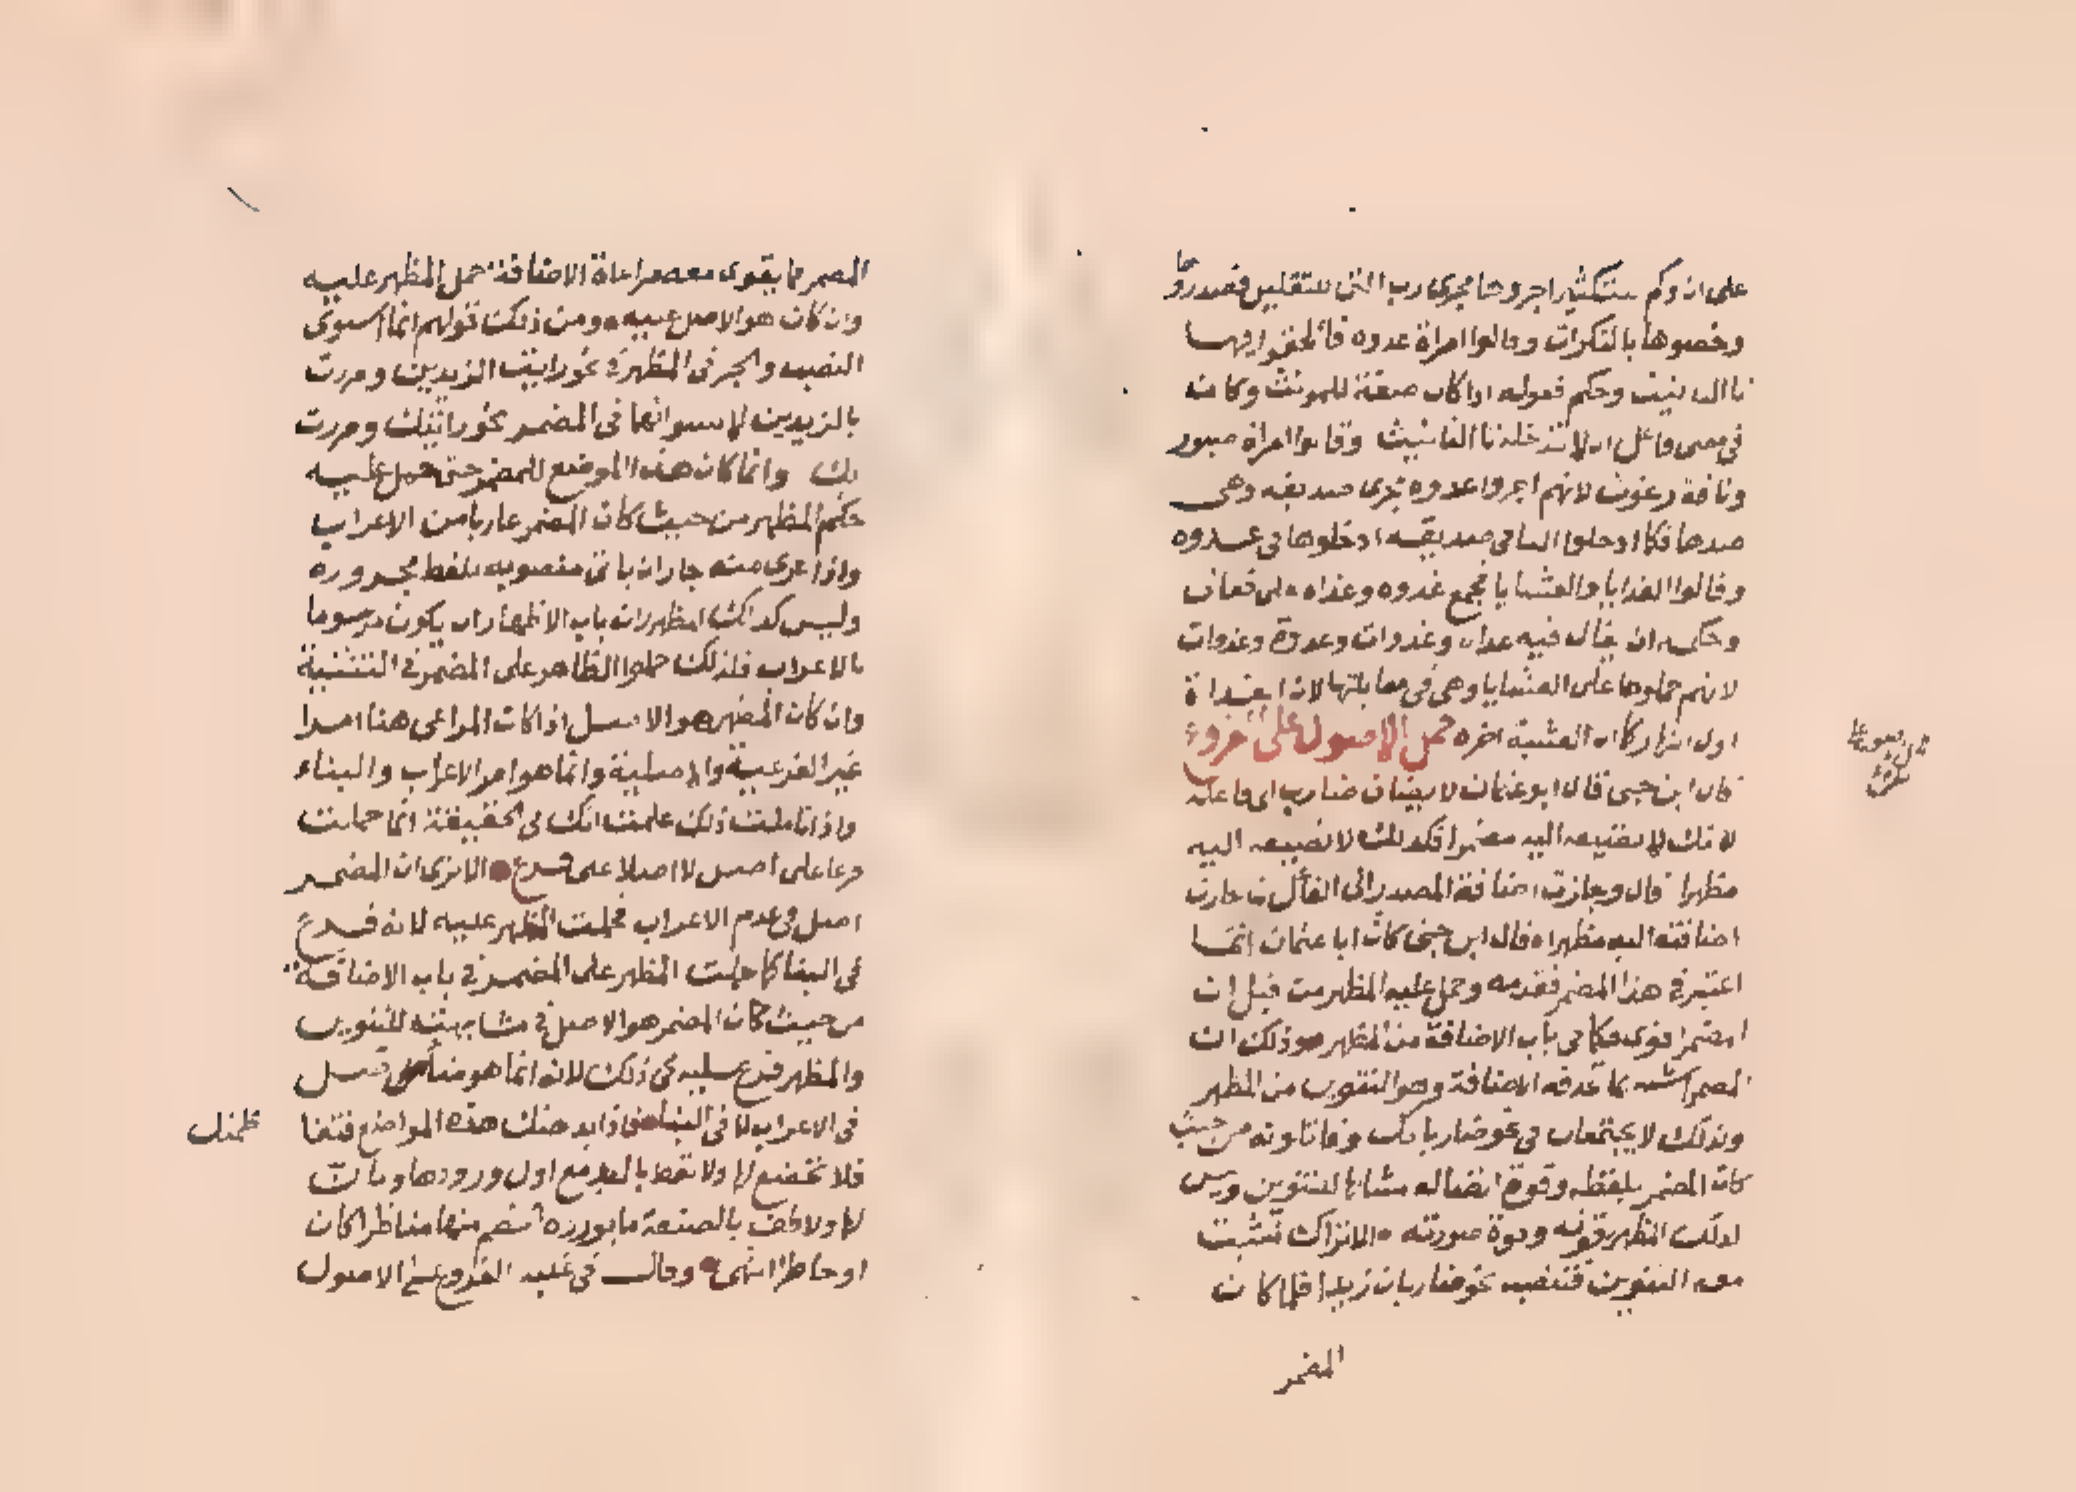 على ان وكم للتكثير اجروها مجرى رب التي للتقليل فصدروها
وخصوها بالنكرات وقالوا امراة عدوه فالحقوا فيها
تا التانيث وحكم فعول اذا كان صفة للمونث وكان
في معنى فاعل ان لا تدخله تا التانيث وقالوا امراة صبور
وناقة رغوث لانهم اجروا عدوه مجرى صديقه وهي
ضدها فكما ادخلوا التا في صديقه ادخلوها في عدوه
وقالوا الغدايا والعشايا فجمع غدوه وغداه على فعالى
وحكمه ان يقال فيه غداه وغدوات وغدوة وغدوات
لانهم حملوها على العشايا وهي في مقابلتها لان الغداة
اول النهار كما ان العشية اخره حمل الاصول على الفروع
قال ابن جني قال ابو عثمان لا يضاف ضارب الى فاعله
لانك لا تضيفه اليه مضمرا فكذلك لا تضيفه اليه
مظهرا قال وجازت اضافة المصدر الى الفاعل لما جازت
اضافته اليه مظهرا قال ابن جني كان ابا عثمان انما
اعتبر في هذا المضمر فقدمه وحمل عليه المظهر من قبل ان
المضمر اقوى حكما في باب الاضافة من المظهر وذلك ان
المضمر اشبه بما تحذفه الاضافة وهو التنوين من المظهر
ولذلك لا يجتمعان في نحو ضاربانك وقاتلونه من حيث
كان المضمر بلفظه وقوة اتصاله مشابها للتنوين وليس
كذلك المظهر لقوته ووفرة صورته الا تراك تثبت
معه التنوين فتنصبه نحو ضاربان زيدا فلما كان
المضمر
حمل الاصول على الفروع
المضمر مما يقوى معه مراعاة الاضافة حمل المظهر عليه
وان كان هو الاصل عليه ومن ذلك قولهم انما استوى
النصب والجر في المظهر في نحو رايت الزيدين ومررت
بالزيدين لاستوائهما في المضمر نحو رايتك ومررت
بك وانما كان هذا الموضع للمضمر حتى حمل عليه
حكم المظهر من حيث كان المضمر عاريا من الاعراب
واذا عرى منه جاز ان ياتي منصوبه بلفظ مجروره
وليس كذلك المظهر لان باب الاظهار ان يكون مرسوما
بالاعراب فلذلك حملوا الظاهر على المضمر في التثنية
وان كان المظهر هو الاصل اذا كان المراعى هنا امرا
غير الفرعية والاصلية وانما هو امر الاعراب والبناء
واذا تاملت ذلك علمت انك في الحقيقة انما حملت
فرعا على اصل لا اصلا على فرع الا ترى ان المضمر
اصل في عدم الاعراب فحملت المظهر عليه لانه فرع
في البنا كما حملت المظهر على المضمر في باب الاضافة
من حيث كان المضمر هو الاصل في مشابهته للتنوين
والمظهر فرع عليه في ذلك لانه انما هو متاصل
في الاعراب لا في البنا فاذا بدهتك هذه المواضع فتعنا
فلا تخضع لها ولا تعط باليد مع اول ورودها وتات
لها ولاطف بالصنعة ما يورده الخصم منها مناظرا كان
او خاطرا انتهى وقال في غلبة الفروع على الاصول